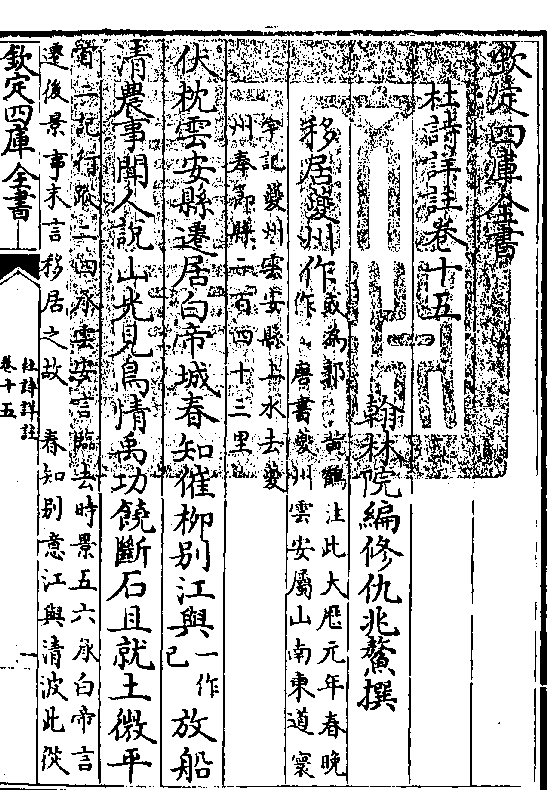 欽定四庫全書
杜詩詳註卷十五
翰林院編修仇兆鰲撰
移居夔州作
或為郭 黃鶴注此大厯元年春晚
作 唐書夔州雲安屬山南東道寰
宇記夔州雲安縣上水去夔
州奉節縣二百四十三里
伏枕雲安縣遷居白帝城春知催栁别江與一作已放船
清農事聞人說山光見鳥情禹功饒斷石且就土微平
首二記行蹤三四承雲安言臨去時景五六承白帝言
遷後景事末言移居之故 春知别意江與清波此從
欽定四庫全書
杜詩詳註
卷十五
一